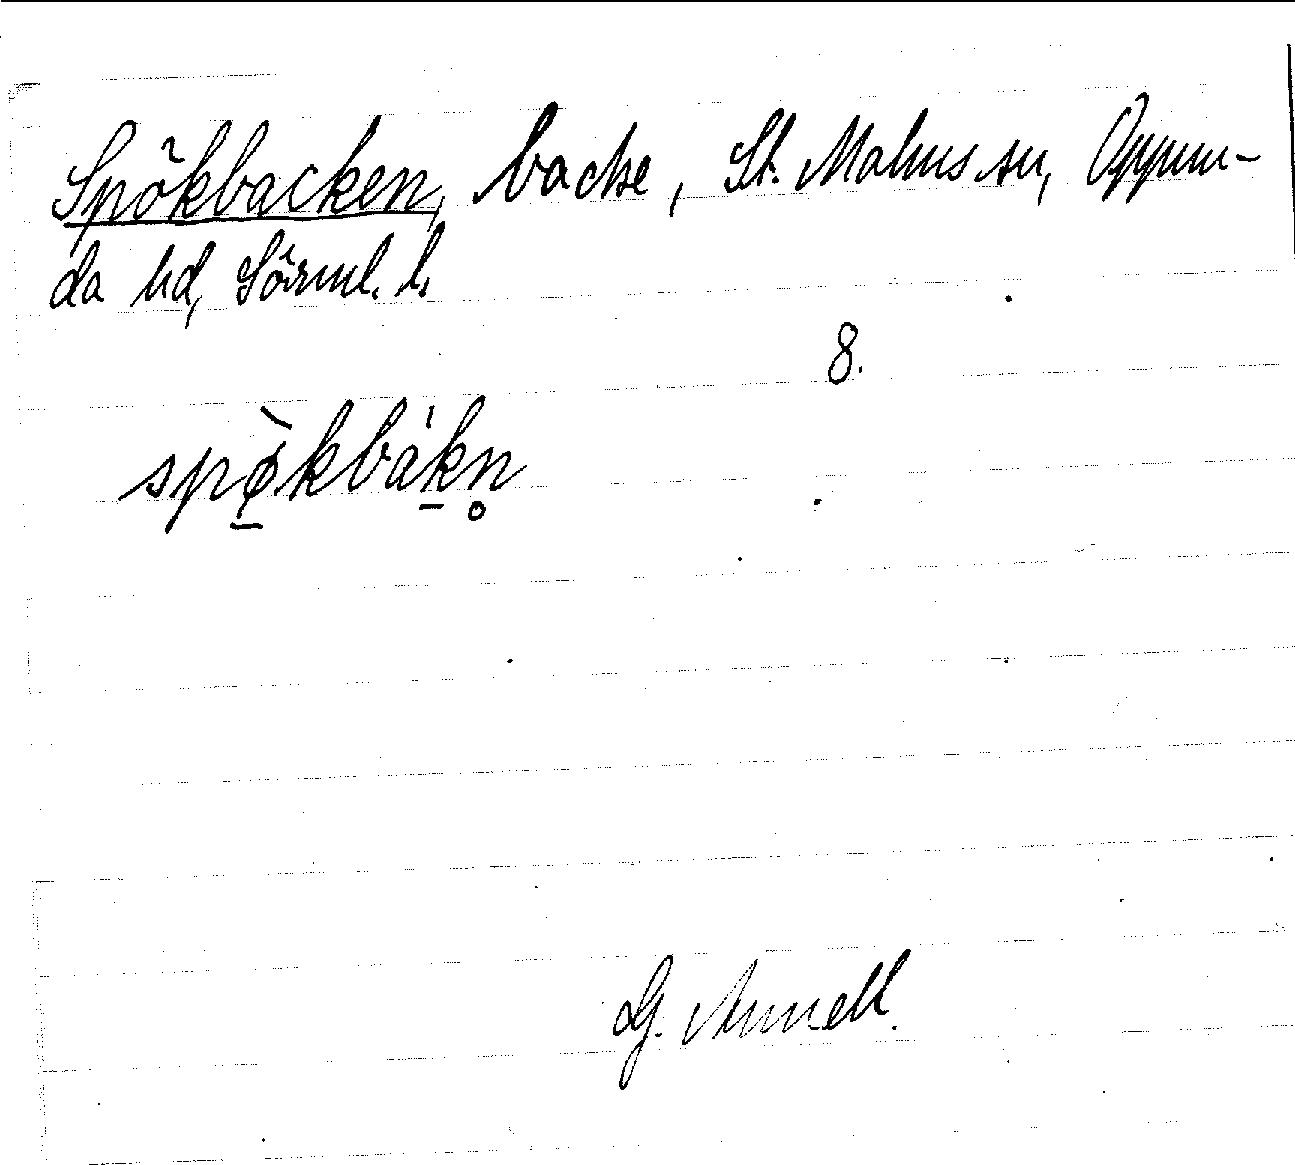 Spökbacken, backe, St. Malms sn, Oppun-
da hd, Sörml. l.
8.
spø̱̀kbák̠n̥
G. Annell.